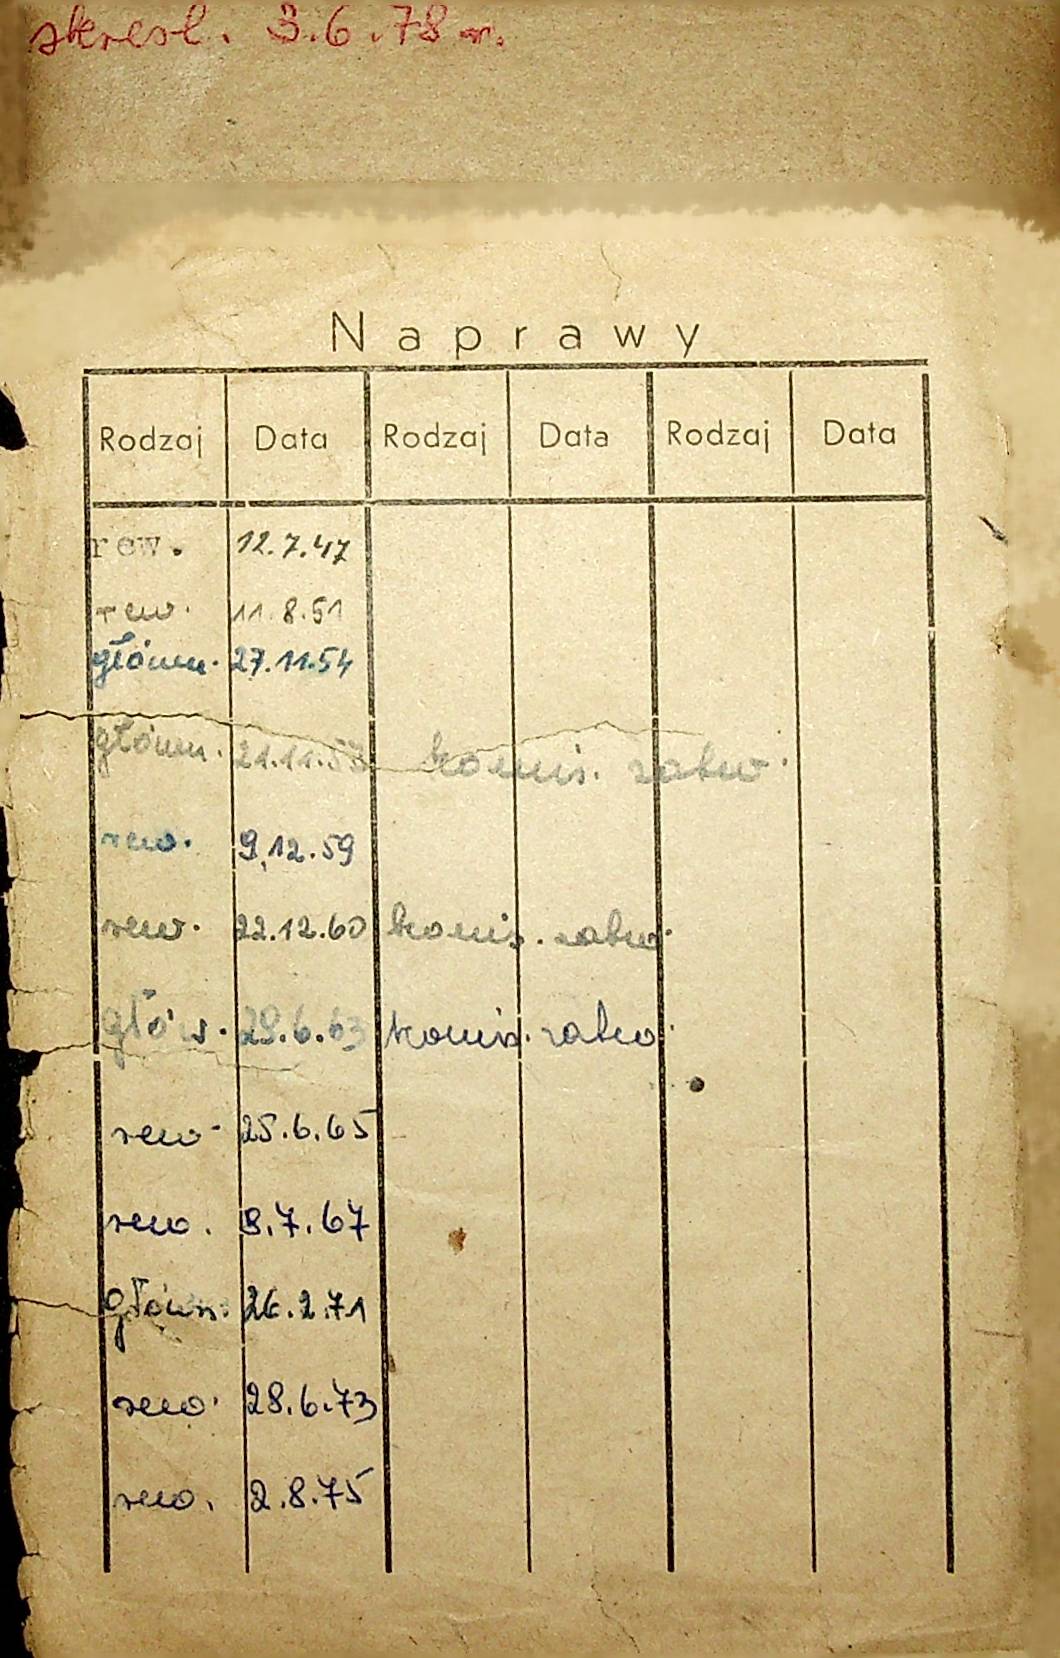 skreśl. 3.6.78 r.
Naprawy
Rodzaj Data Rodzaj Data Rodzaj Data
rew. 12.7.47
rew. 11.8.51
główn. 27.11.54
główn. 21.11.57 komis. zatw.
rew. 9.12.59
rew. 22.12.60 komis. zatw.
głów. 29.6.63 komis. zatw.
rew. 25.6.65
rew. 8.7.67
główn. 26.2.71
rew. 28.6.73
rew. 2.8.75